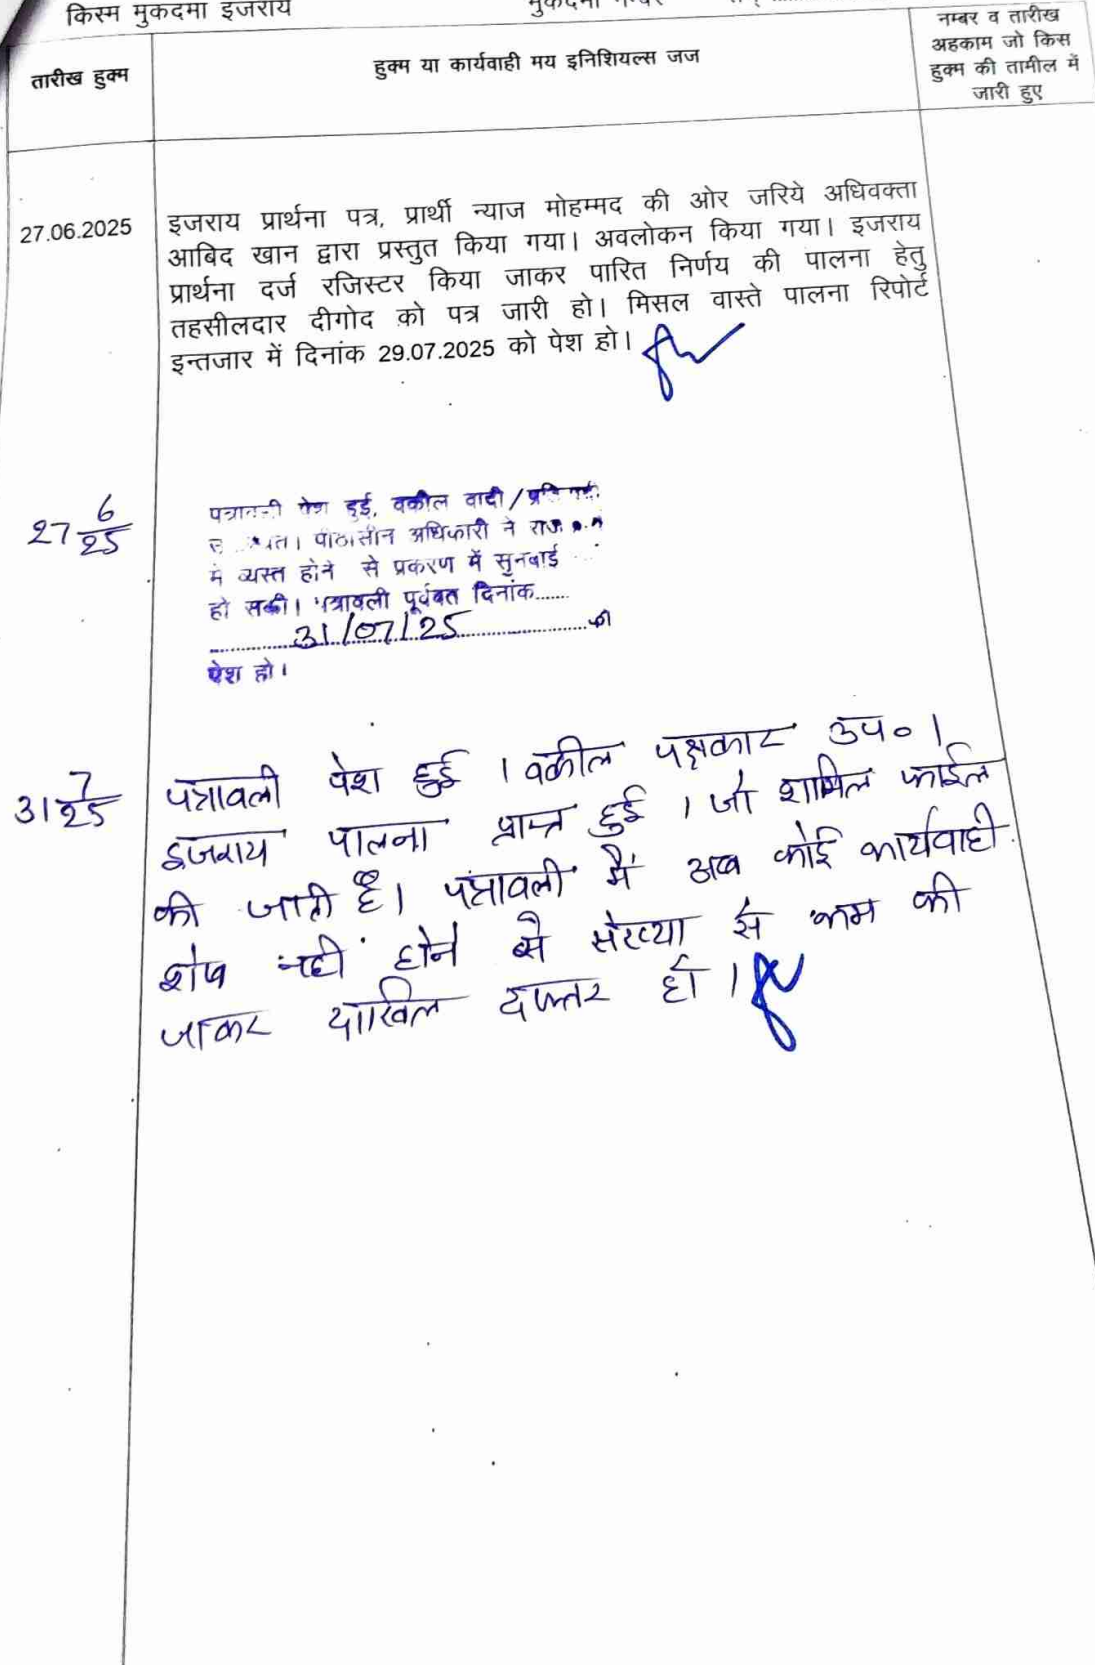 किस्म मुकदमा इजराय
मुकदमा नम्बर
तारीख हुक्म
हुक्म या कार्यवाही मय इनिशियल्स जज
नम्बर व तारीख
अहकाम जो किस
हुक्म की तामील में
जारी हुए
27.06.2025
इजराय प्रार्थना पत्र, प्रार्थी न्याज मोहम्मद की ओर जरिये अधिवक्ता
आबिद खान द्वारा प्रस्तुत किया गया। अवलोकन किया गया। इजराय
प्रार्थना दर्ज रजिस्टर किया जाकर पारित निर्णय की पालना हेतु
तहसीलदार दीगोद को पत्र जारी हो। मिसल वास्ते पालना रिपोर्ट
इन्तजार में दिनांक 29.07.2025 को पेश हो।
27 6/25
पत्रावली पेश हुई, वकील वादी/
पीठासीन अधिकारी ने राज
मे व्यस्त होने से प्रकरण में सुनवाई
हो सकी। पत्रावली पूर्ववत दिनांक.......
31/07/25 को
पेश हो।
31 7/25
पत्रावली पेश हुई । वकील पक्षकार उप० ।
इजराय पालना प्राप्त हुई । जो शामिल फाईल
की जाती है। पत्रावली में अब कोई कार्यवाही
शेष नही होने से संख्या से कम की
जाकर दाखिल दफ्तर हो ।